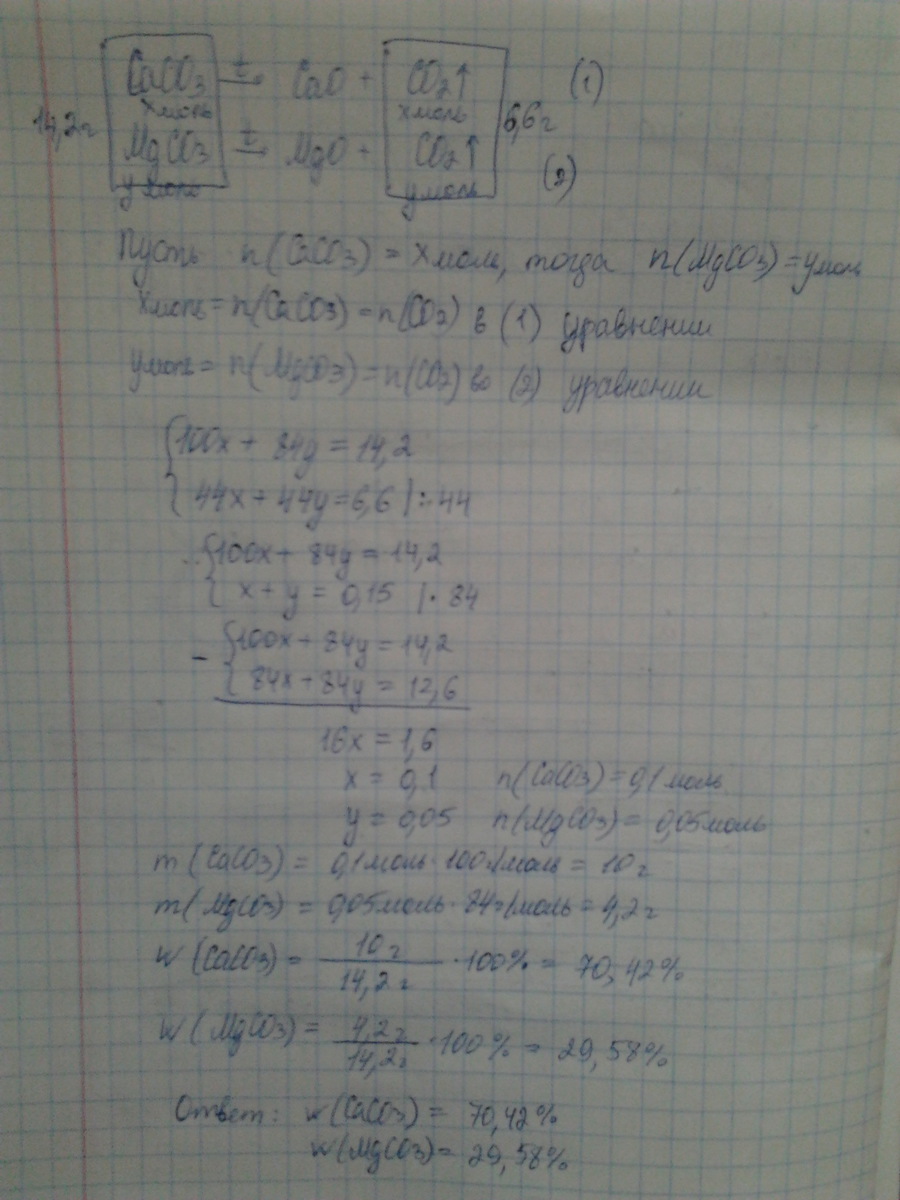 CaCO3 t→ CaO + CO2↑ (1)
х моль х моль
14,2 г 6,6 г
MgCO3 t→ MgO + CO2↑ (2)
у моль у моль
Пусть n(CaCO3) = х моль, тогда n(MgCO3) = у моль
х моль = n(CaCO3) = n(CO2) в (1) уравнении
у моль = n(MgCO3) = n(CO2) во (2) уравнении
{100x + 84y = 14,2
{44x + 44y = 6,6 |:44
{100x + 84y = 14,2
{x + y = 0,15 |· 84
- {100x + 84y = 14,2
{84x + 84y = 12,6
16x = 1,6
x = 0,1 n(CaCO3) = 0,1 моль
y = 0,05 n(MgCO3) = 0,05 моль
m(CaCO3) = 0,1 моль · 100 г/моль = 10 г
m(MgCO3) = 0,05 моль · 84 г/моль = 4,2 г
w(CaCO3) = 10 г / 14,2 г · 100% = 70,42%
w(MgCO3) = 4,2 г / 14,2 г · 100% = 29,58%
Ответ: w(CaCO3) = 70,42%
w(MgCO3) = 29,58%